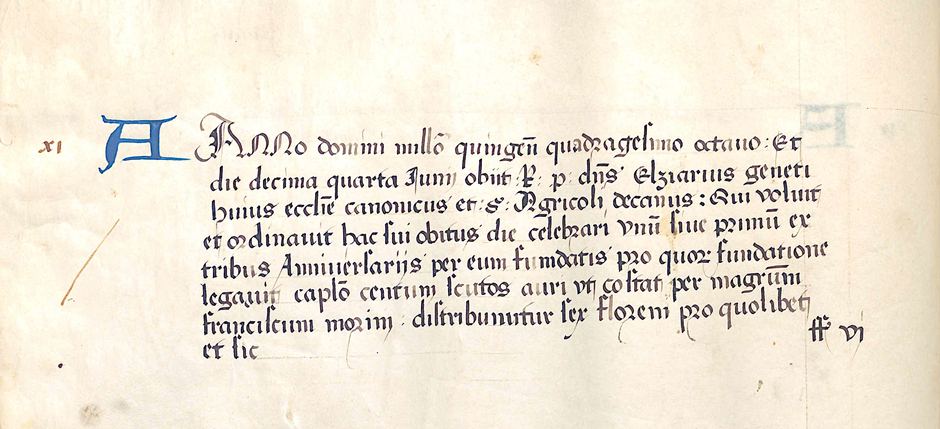 xi A Anno domini millō quingeñ quadragesimo octavo : Et
die decima quarta Junij obiit : R : p : dñs Elziarius geneti
huius ecclīe canonicus et : S : Agricoli decanus : Qui voluit
et ordinavit hac sui obitus die celebrari vnū sive primū ex
tribus Anniversarijs per eum fundatis pro quor fundatione
legavit caplō centum scutos auri vti costat per magrūm
franciscum morini : distribuuntur sex floreni pro quolibet
et sic ff vi